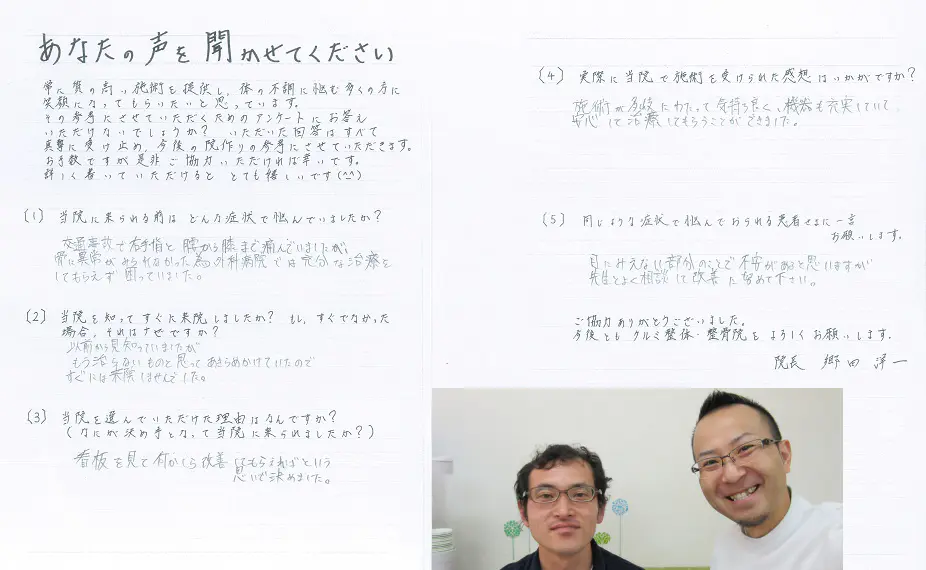 あなたの声を聞かせてください
常に質の高い施術を提供し、体の不調に悩む多くの方に
笑顔になってもらいたいと思っています。
その参考にさせていただくためのアンケートにお答え
いただけないでしょうか？ いただいた回答はすべて
真摯に受け止め、今後の院作りの参考にさせていただきます。
お手数ですが是非ご協力いただければ幸いです。
詳しく書いていただけるととても嬉しいです(^^)
(1) 当院に来られる前はどんな症状で悩んでいましたか？
交通事故で右手指と腰から膝まで痛んでいましたが、
骨に異常がみられなかった為外科病院では充分な治療を
してもらえず困っていました。
(2) 当院を知ってすぐに来院しましたか？ もし、すぐでなかった
場合、それはなぜですか？
以前から見知っていましたが
もう治らないものと思ってあきらめかけていたので
すぐには来院しませんでした。
(3) 当院を選んでいただけた理由はなんですか？
(なにが決め手となって当院に来られましたか？)
看板を見て何かしら改善してもらえればという
思いで決めました。
(4) 実際に当院で施術を受けられた感想はいかがですか？
施術が多岐にわたって気持ち良く、機器も充実していて、
安心して治療してもらうことができました。
(5) 同じような症状で悩んでおられる患者さまに一言
お願いします。
目にみえない部分のことで不安があると思いますが
先生とよく相談して改善に努めて下さい。
ご協力ありがとうございました。
今後ともクルミ整体・整骨院をよろしくお願いします。
院長 郷田洋一